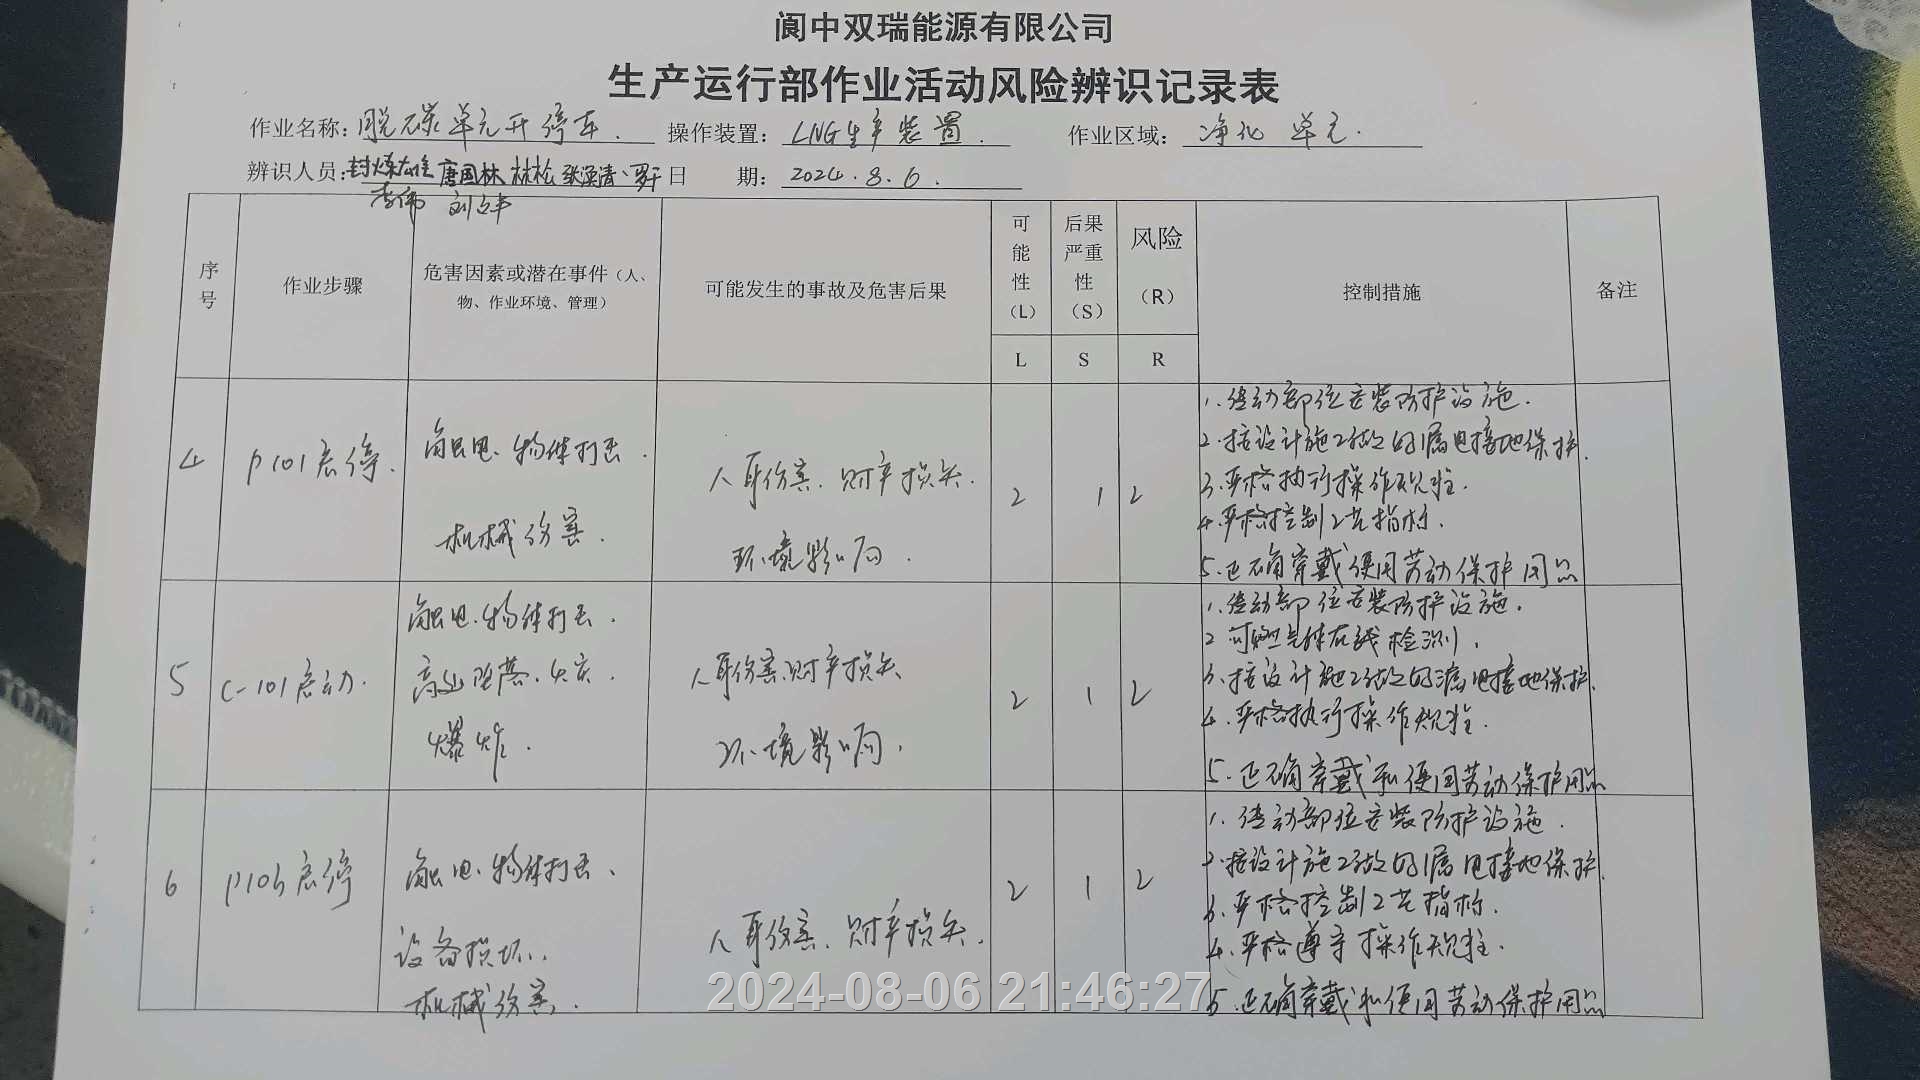 阆中双瑞能源有限公司
生产运行部作业活动风险辨识记录表
作业名称：脱碳单元开停车. 操作装置：LNG生产装置. 作业区域：净化单元.
辨识人员：唐国林 林松 日 期：2024.8.6.
李伟 刘文丰
序号 作业步骤 危害因素或潜在事件（人、物、作业环境、管理） 可能发生的事故及危害后果 可能性（L） 后果严重性（S） 风险（R） 控制措施 备注
L S R
4 P101启停. 触电.物体打击. 机械伤害. 人身伤害.财产损失. 环境影响. 2 1 2
1.传动部位安装防护设施.
2.按设计施工做的漏电接地保护.
3.严格执行操作规程.
4.严格控制工艺指标.
5.正确穿戴使用劳动保护用品
5 C-101启动. 触电.物体打击. 高处坠落.火灾. 爆炸. 人身伤害.财产损失 环境影响. 2 1 2
1.传动部位安装防护设施.
2 可燃气体在线检测.
3.按设计施工做的漏电接地保护.
4.严格执行操作规程.
5.正确穿戴和使用劳动保护用品
6 P106启停 触电.物体打击. 设备损坏. 机械伤害. 人身伤害.财产损失. 2 1 2
1.传动部位安装防护设施.
2.按设计施工做的漏电接地保护.
3.严格控制工艺指标.
4.严格遵守操作规程.
5.正确穿戴和使用劳动保护用品
2024-08-06 21:46:27